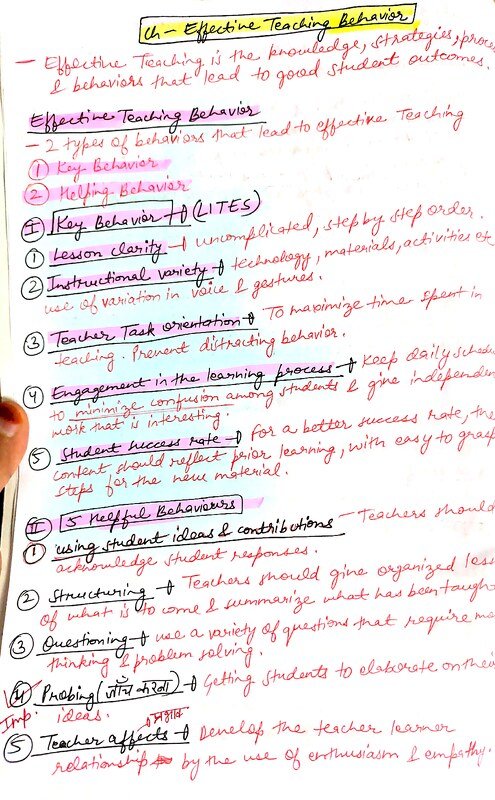 Ch - Effective Teaching Behavior
- Effective Teaching is the knowledge, strategies, proces
& behaviors that lead to good student outcomes.
Effective Teaching Behavior
- 2 types of behaviors that lead to effective Teaching
① Key Behavior
② Helping Behavior
I Key Behavior → (LITES)
① Lesson clarity → Uncomplicated, step by step order.
② Instructional variety → technology, materials, activities etc
use of variation in voice & gestures.
③ Teacher Task orientation → To maximize time spent in
teaching. Prevent distracting behavior.
④ Engagement in the learning process → Keep daily schedu
to minimize confusion among students & give independen
work that is interesting.
⑤ Student success rate → For a better success rate, the
content should reflect prior learning, with easy to grasp
steps for the new material.
II 5 Helpful Behaviours
① using student ideas & contributions - Teachers should
acknowledge student responses.
② Structuring → Teachers should give organized less
of what is to come & summarize what has been taugh
③ Questioning → use a variety of questions that require mo
thinking & problem solving.
④ Probing (जाँच करना) → Getting students to elaborate on their
Imp. ideas.
प्रभाव
⑤ Teacher affects → Develop the teacher learner
relationship by the use of enthusiasm & empathy.